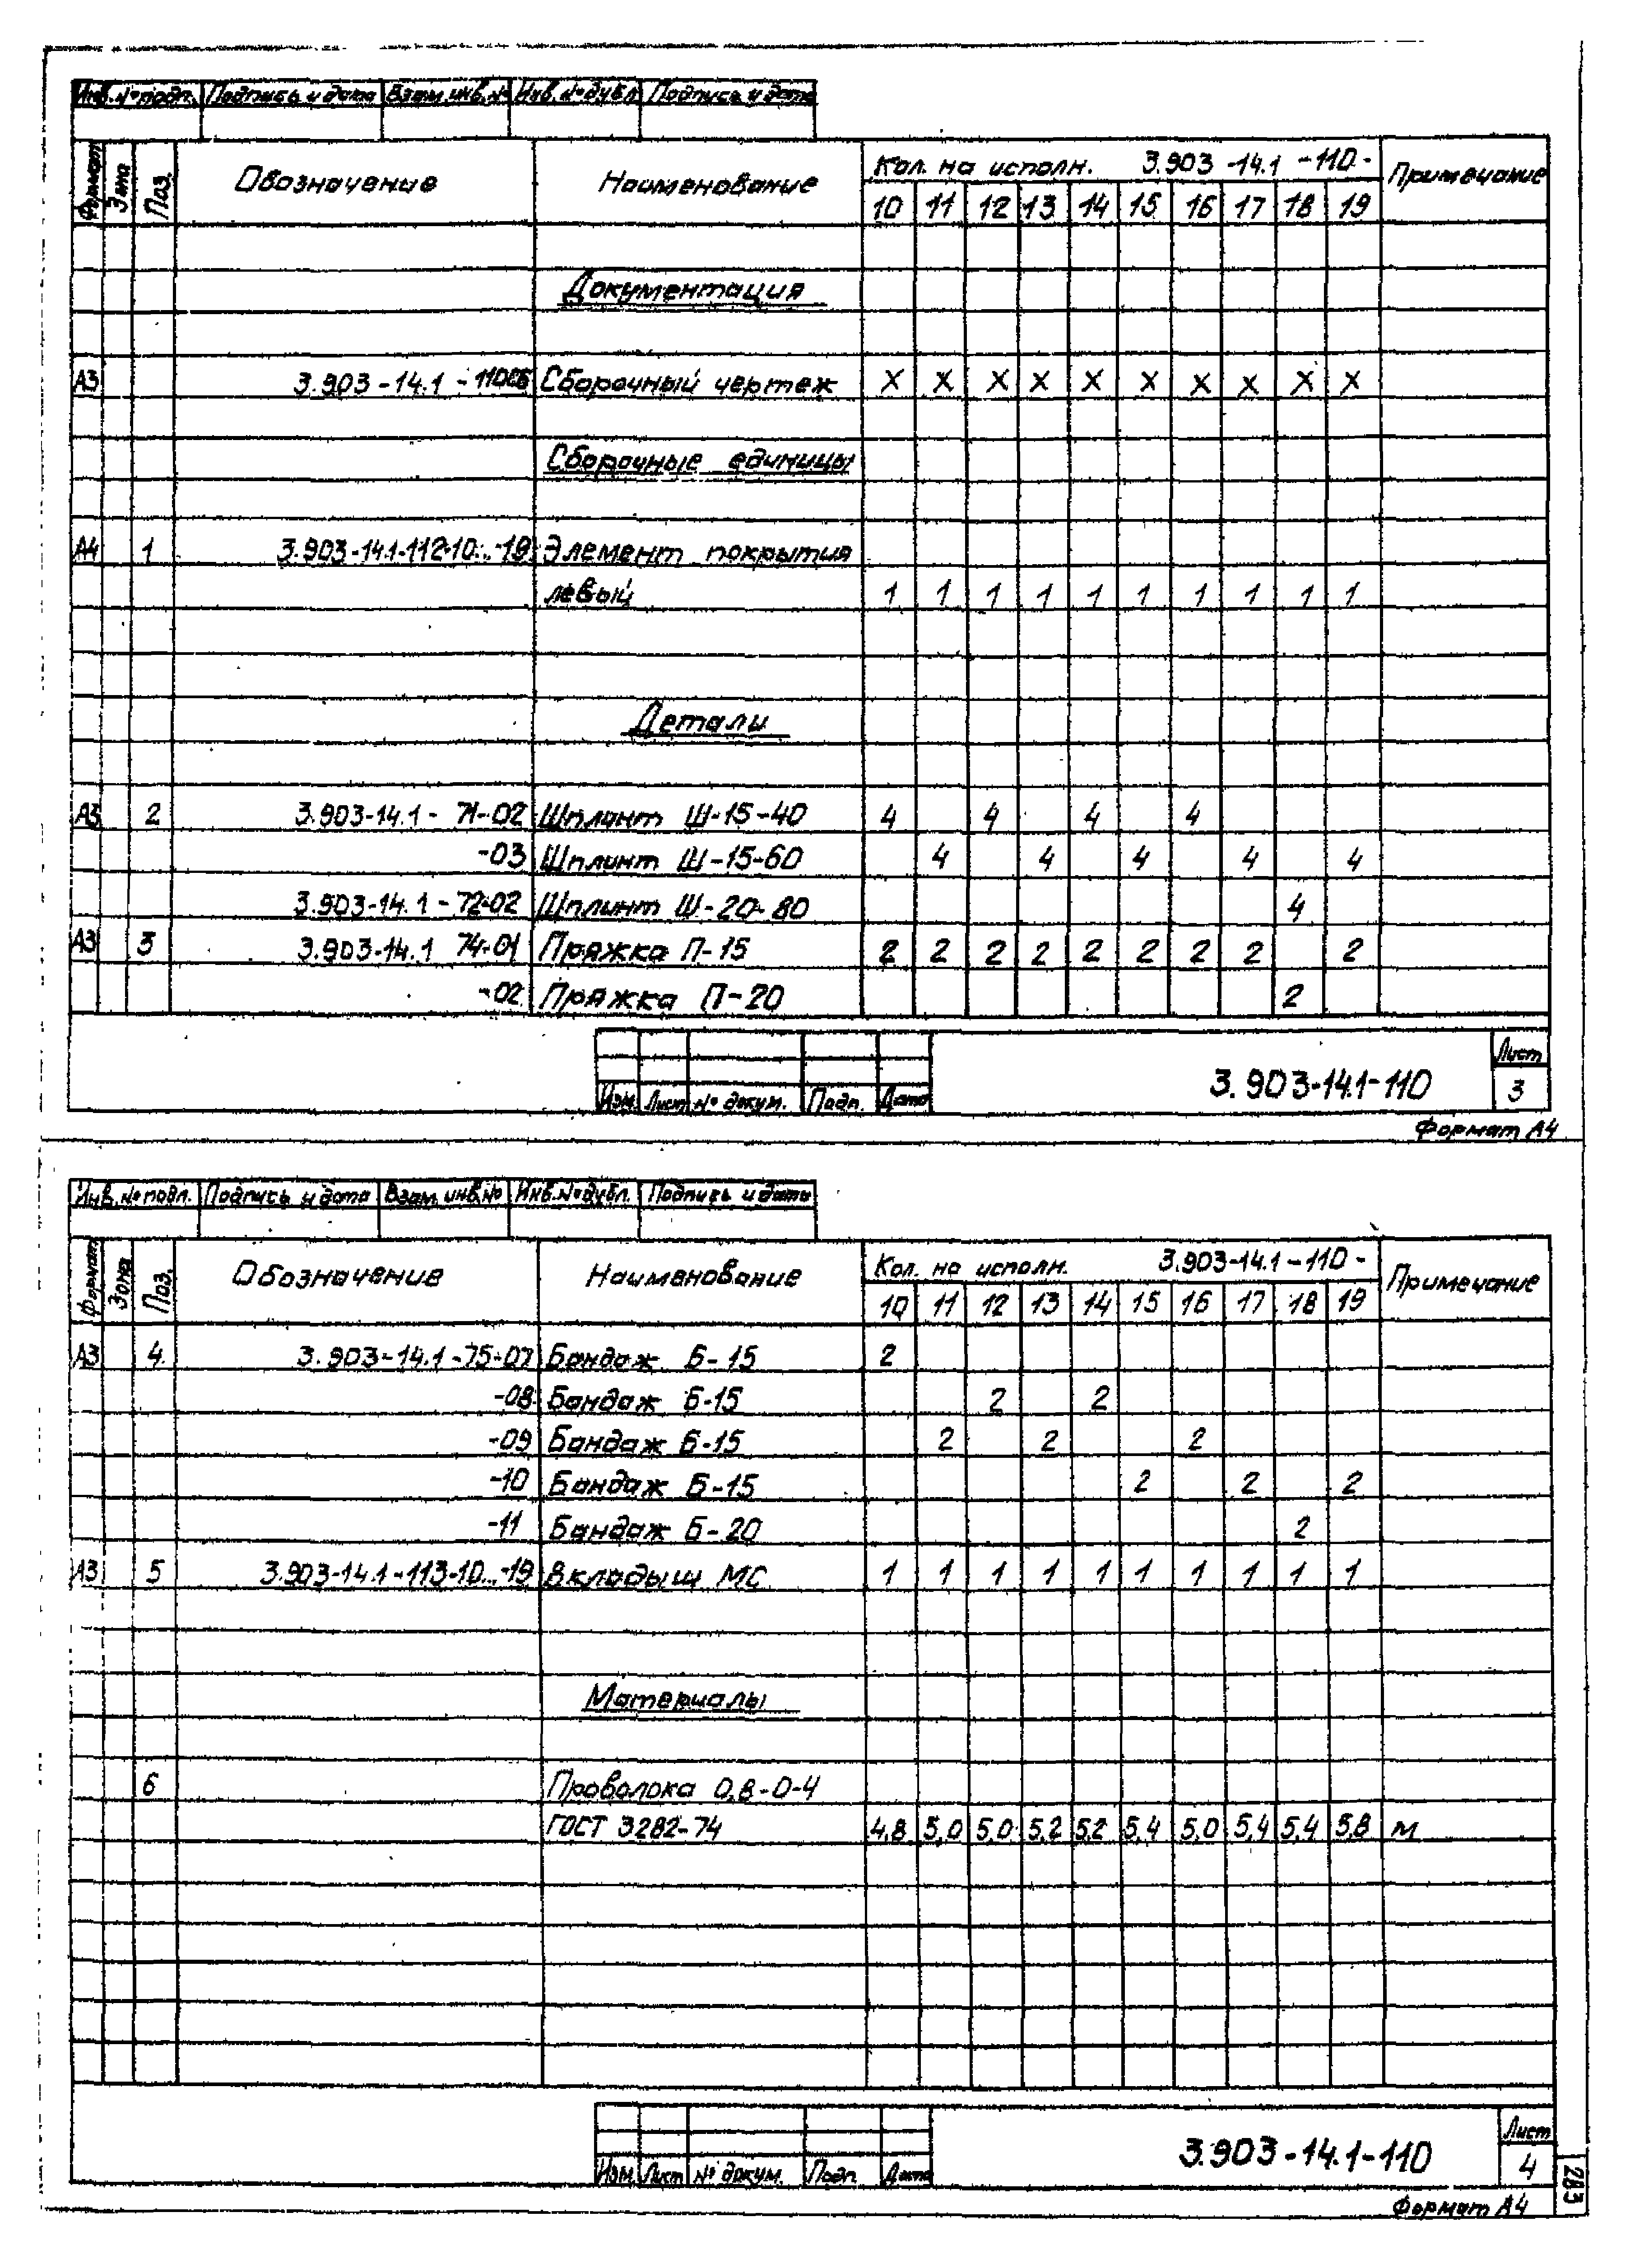 Инв.№подл. Подпись и дата Взам.инв.№ Инв.№дубл. Подпись и дата
Формат Зона Поз. Обозначение Наименование Кол. на исполн. 3.903-14.1-110- Примечание
10 11 12 13 14 15 16 17 18 19
Документация
А3 3.903-14.1-110СБ Сборочный чертеж X X X X X X X X X X
Сборочные единицы
А4 1 3.903-14.1-112-10...-19 Элемент покрытия
левый 1 1 1 1 1 1 1 1 1 1
Детали
А3 2 3.903-14.1-71-02 Шплинт Ш-15-40 4 4 4 4
-03 Шплинт Ш-15-60 4 4 4 4 4
3.903-14.1-72-02 Шплинт Ш-20-80 4
А3 3 3.903-14.1 74-01 Пряжка П-15 2 2 2 2 2 2 2 2 2
-02 Пряжка П-20 2
Изм. Лист № докум. Подп. Дата 3.903-14.1-110 Лист 3
Формат А4
Инв.№подл. Подпись и дата Взам.инв.№ Инв.№дубл. Подпись и дата
Формат Зона Поз. Обозначение Наименование Кол. на исполн. 3.903-14.1-110- Примечание
10 11 12 13 14 15 16 17 18 19
А3 4 3.903-14.1-75-07 Бандаж Б-15 2
-08 Бандаж Б-15 2 2
-09 Бандаж Б-15 2 2 2
-10 Бандаж Б-15 2 2 2
-11 Бандаж Б-20 2
А3 5 3.903-14.1-113-10...-19 Вкладыш МС 1 1 1 1 1 1 1 1 1 1
Материалы
6 Проволока 0,8-0-4
ГОСТ 3282-74 4,8 5,0 5,0 5,2 5,2 5,4 5,0 5,4 5,4 5,8 м
Изм. Лист № докум. Подп. Дата 3.903-14.1-110 Лист 4
Формат А4
283